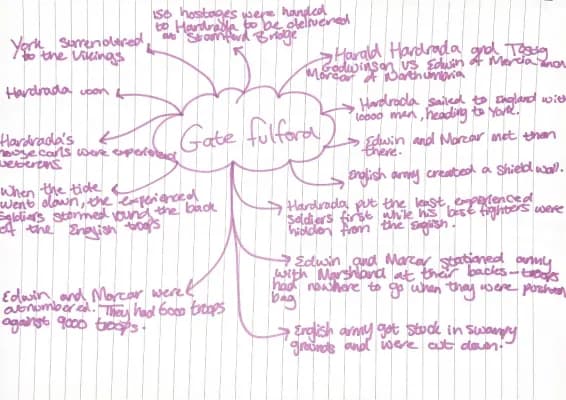 Gate fulford
150 hostages were handed
to Hardrada to be delivered
at Stamford Bridge
Harald Hardrada and Tostig
Godwinson VS Edwin of Mercia and
Morcar of Northumbria
Hardrada sailed to England with
10000 men, heading to York.
Edwin and Morcar met them
there.
English army created a shield wall.
Hardrada put the least experienced
soldiers first while his best fighters were
hidden from the English.
Edwin and Morcar stationed army
with Marshland at their backs - troops
had nowhere to go when they were pushed
bag
English army got stuck in swampy
grounds and were cut down.
Edwin and Morcar were
outnumbered. They had 6000 troops
against 9000 troops.
When the tide
went down, the experienced
soldiers stormed round the back
of the English troops
Hardrada's
housecarls were experienced
veterans
Hardrada won
York surrendered
to the Vikings